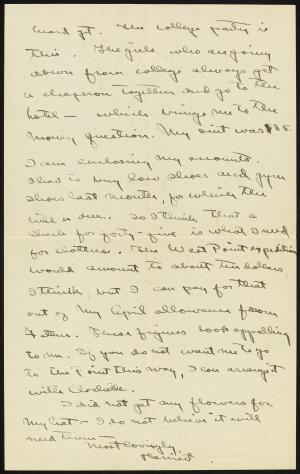 heard yet. The college party is
this. The girls who are going
down from college always get
a chaperon together and go to the
hotel — which brings me to the
money question. My aunt was $35.
I am enclosing my accounts.
I had to buy low shoes and gym
shoes last month, for which the
bill is due. So I think that a
check for forty-five is what I need
for clothes. The West Point expedition
would amount to about ten dollars
I think, but I can pay for that
out of my April allowance from
Father. These figures look appalling
to me. If you do not want me to go
to the Point this way, I can arrange it
with
I did not get any flowers for
my hat — I do not believe it will
need them —
Most lovingly,
Harriet